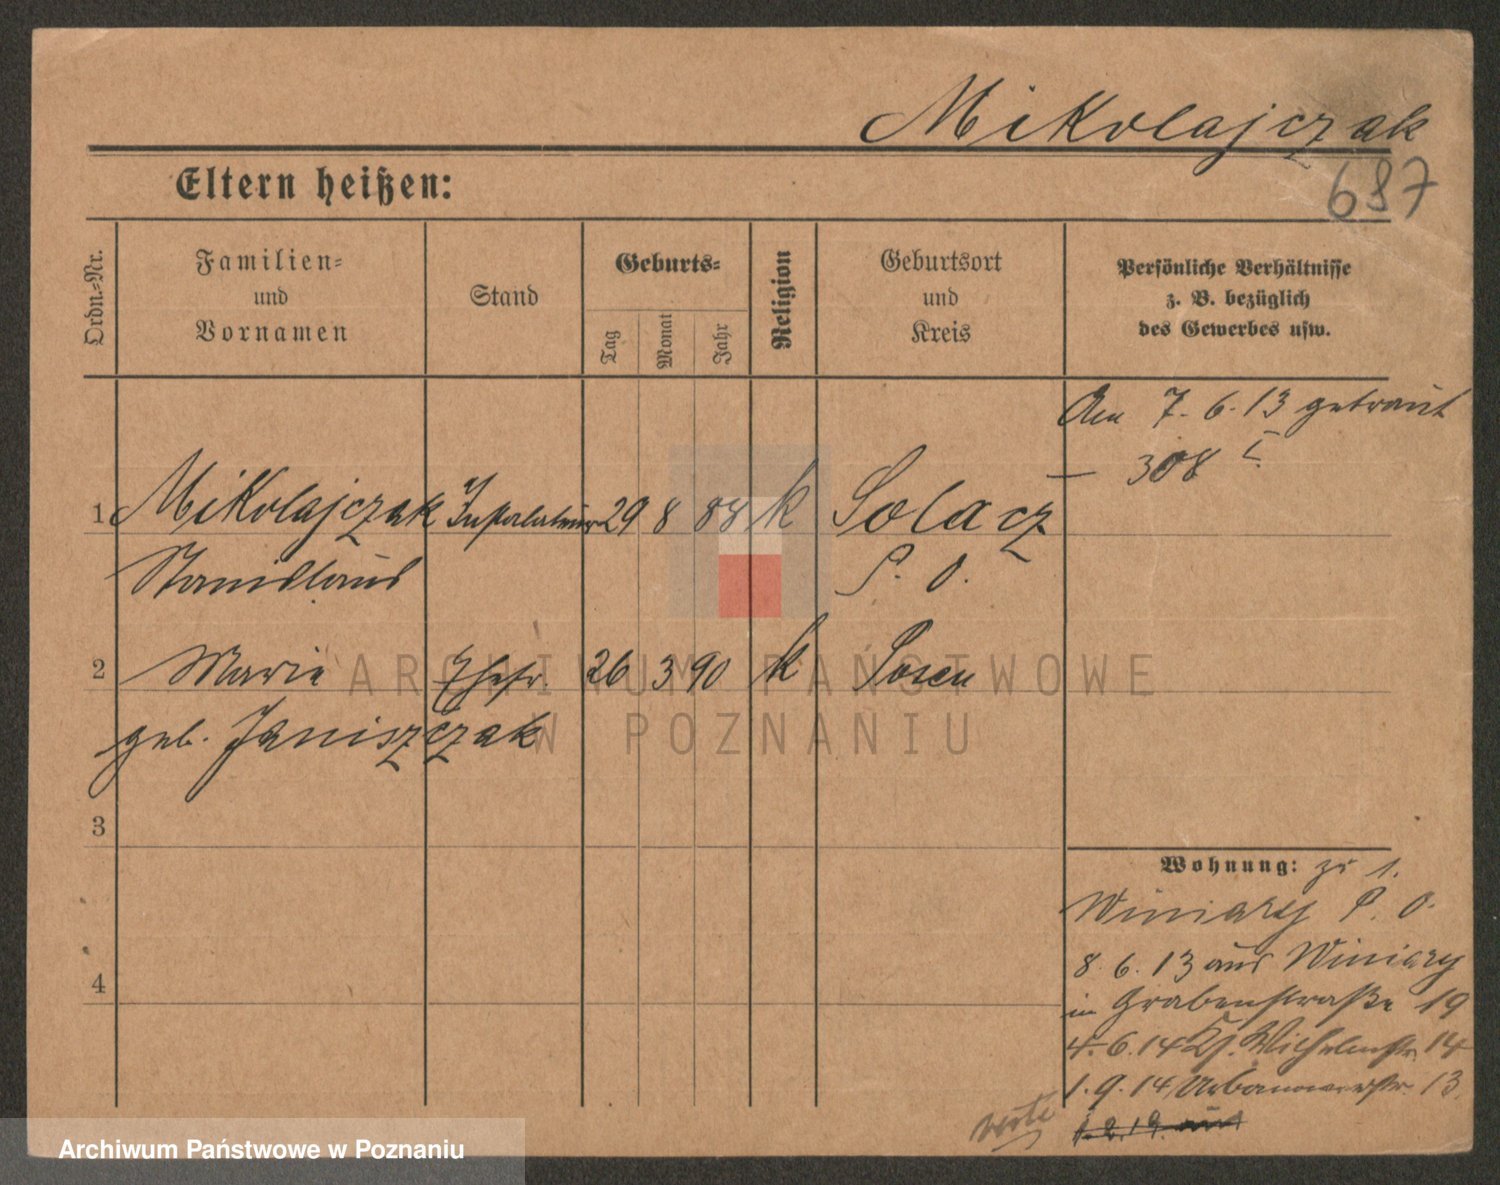 Mikolajczak
687
Eltern heißen:
Ordn.-Nr.
Familien-
und
Vornamen
Stand
Geburts-
Tag
Monat
Jahr
Religion
Geburtsort
und
Kreis
Persönliche Verhältnisse
z. B. bezüglich
des Gewerbes usw.
Am 7. 6. 13 getraut
— 308 I.
1 Mikolajczak Installateur 29 8 88 k Solacz
Stanislaus P. O.
2 Marie Ehefr. 26 3 90 k Posen
geb. Janiszczak
3
4
Wohnung: zu 1.
Winiary P. O.
8. 6. 13 aus Winiary
in Grabenstraße 19
4. 6. 14 Kl. Wilhelmstr. 14
1. 9. 14 Urbanowerstr. 13.
1. 2. 19. aus
verte
ARCHIWUM PAŃSTWOWE
W POZNANIU
Archiwum Państwowe w Poznaniu